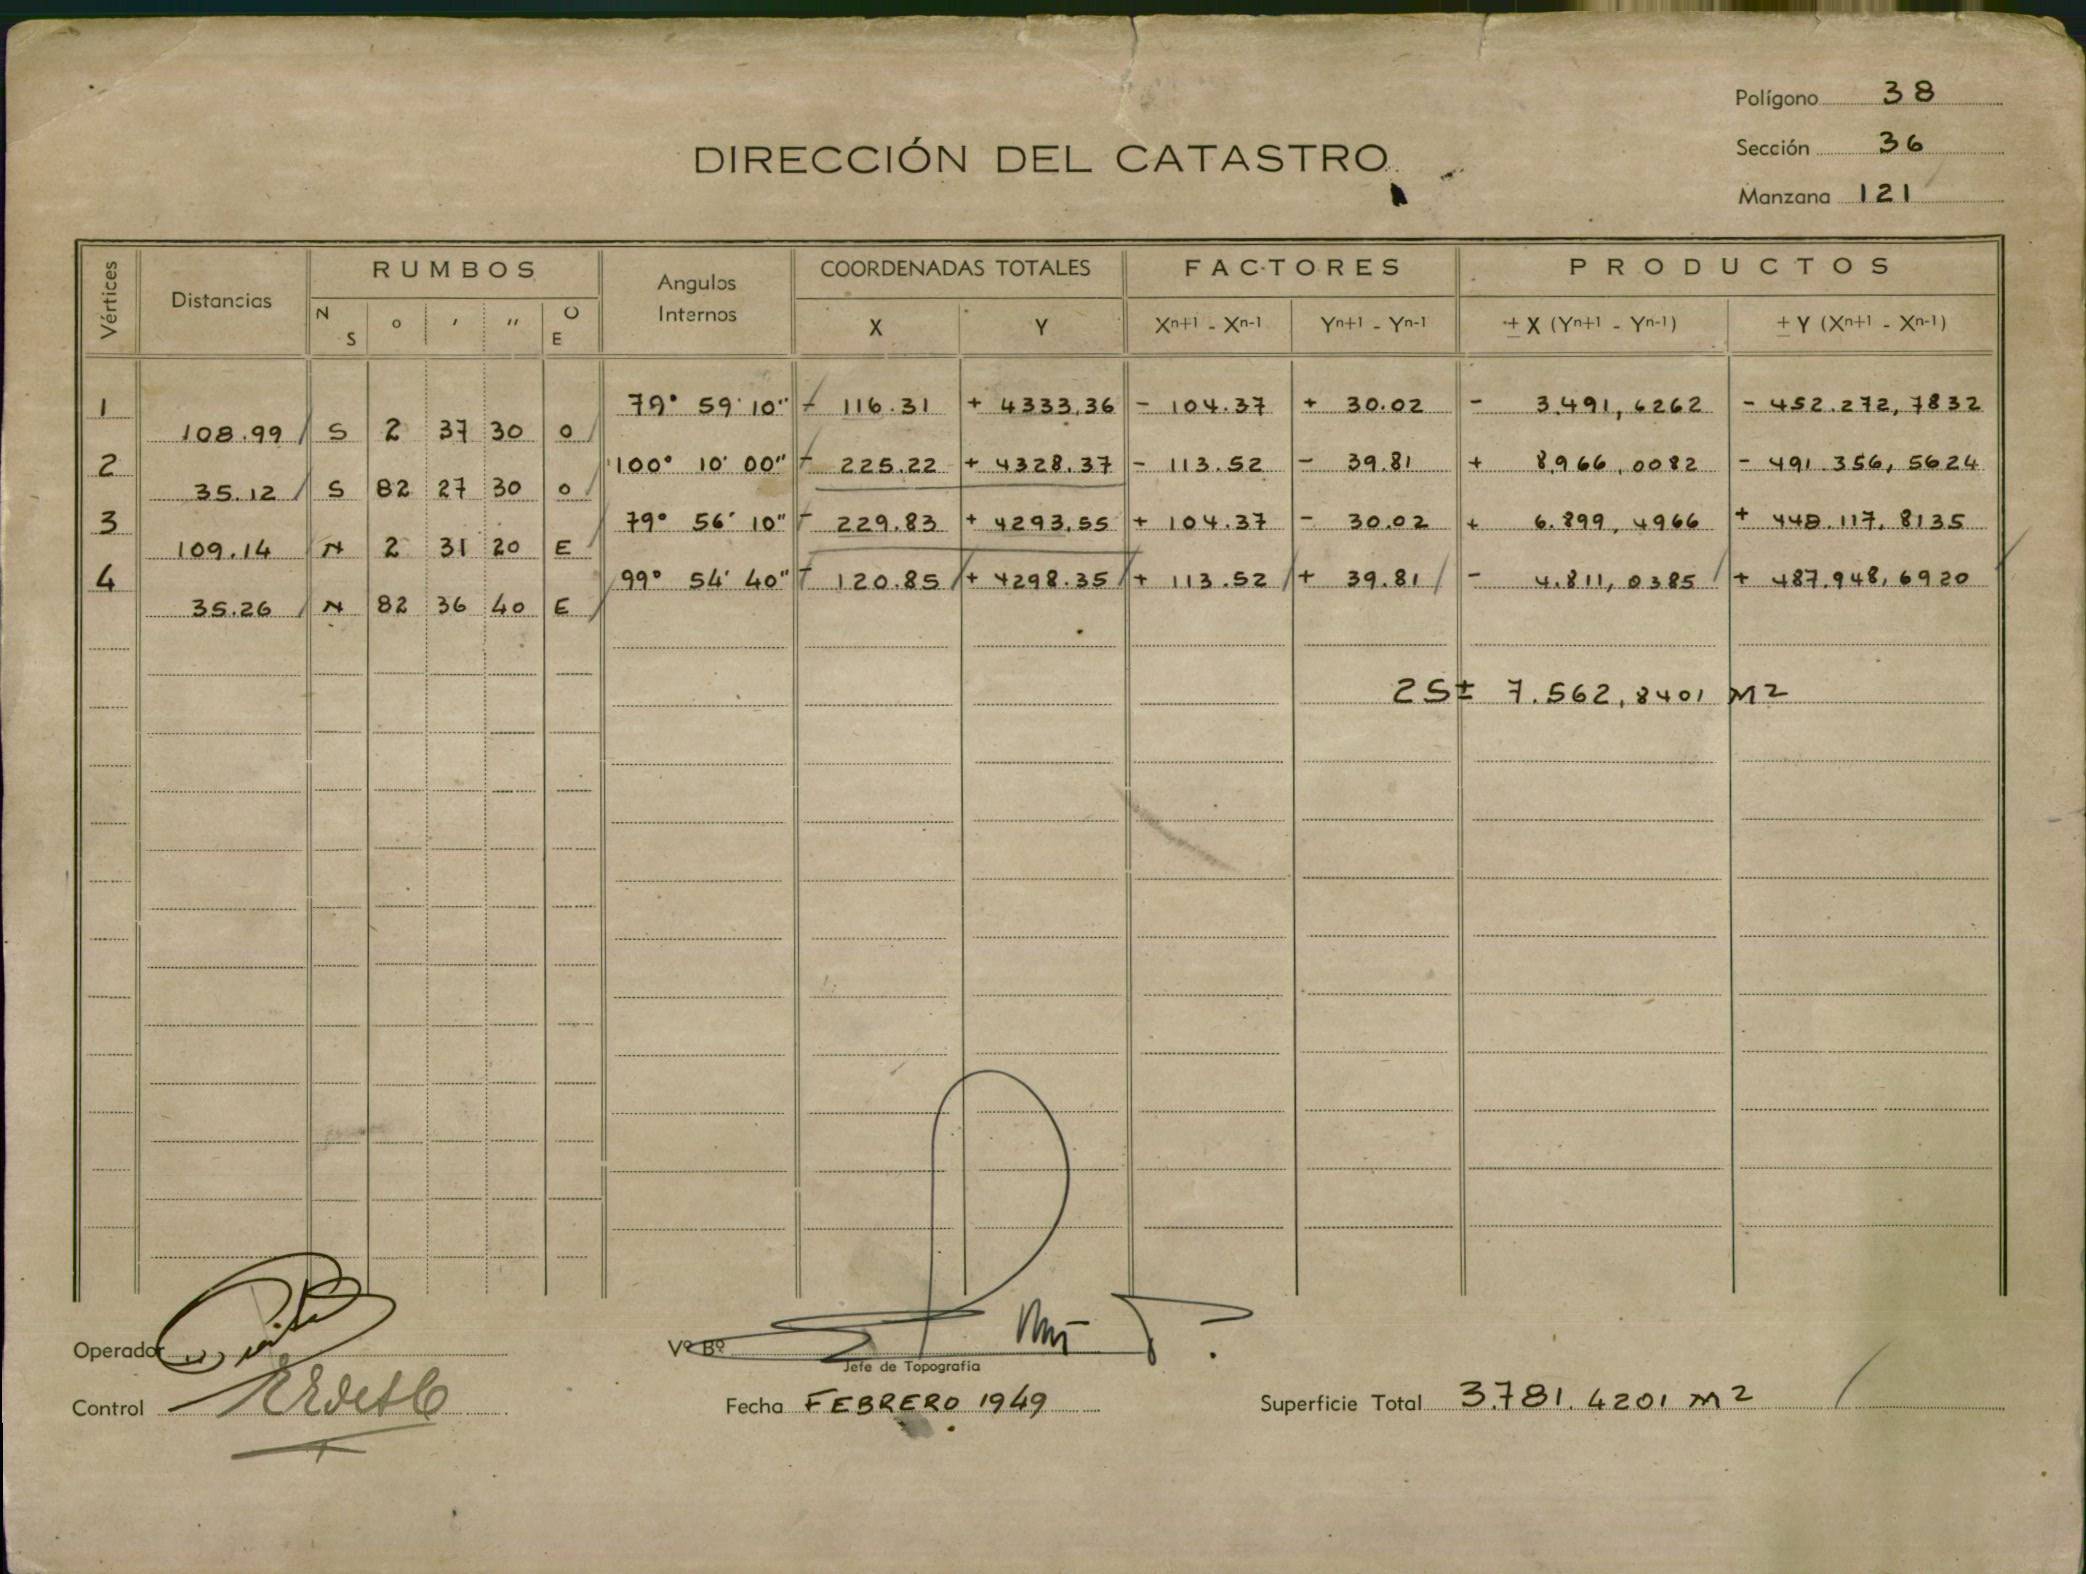 Polígono 38
DIRECCIÓN DEL CATASTRO
Sección 36
Manzana 121
Vértices Distancias RUMBOS Angulos Internos COORDENADAS TOTALES FACTORES PRODUCTOS
N S ° ' '' O E X Y Xn+1 - Xn-1 Yn+1 - Yn-1 ± X (Yn+1 - Yn-1) ± Y (Xn+1 - Xn-1)
1 79° 59' 10" - 116.31 + 4333,36 - 104.37 + 30.02 - 3.491,6262 - 452.272,7832
108.99 S 2 37 30 O
2 100° 10' 00" - 225.22 + 4328.37 - 113.52 - 39.81 + 8.966,0082 - 491.356,5624
35.12 S 82 27 30 O
3 79° 56' 10" - 229.83 + 4293,55 + 104.37 - 30.02 + 6.899,4966 + 448.117,8135
109.14 N 2 31 20 E
4 99° 54' 40" - 120.85 + 4298.35 + 113.52 + 39.81 - 4.811,0385 + 487.948,6920
35.26 N 82 36 40 E
2S± 7.562,8401 M2
Operador
Vº Bº
Jefe de Topografía
Control
Fecha FEBRERO 1949
Superficie Total 3.781.4201 M2